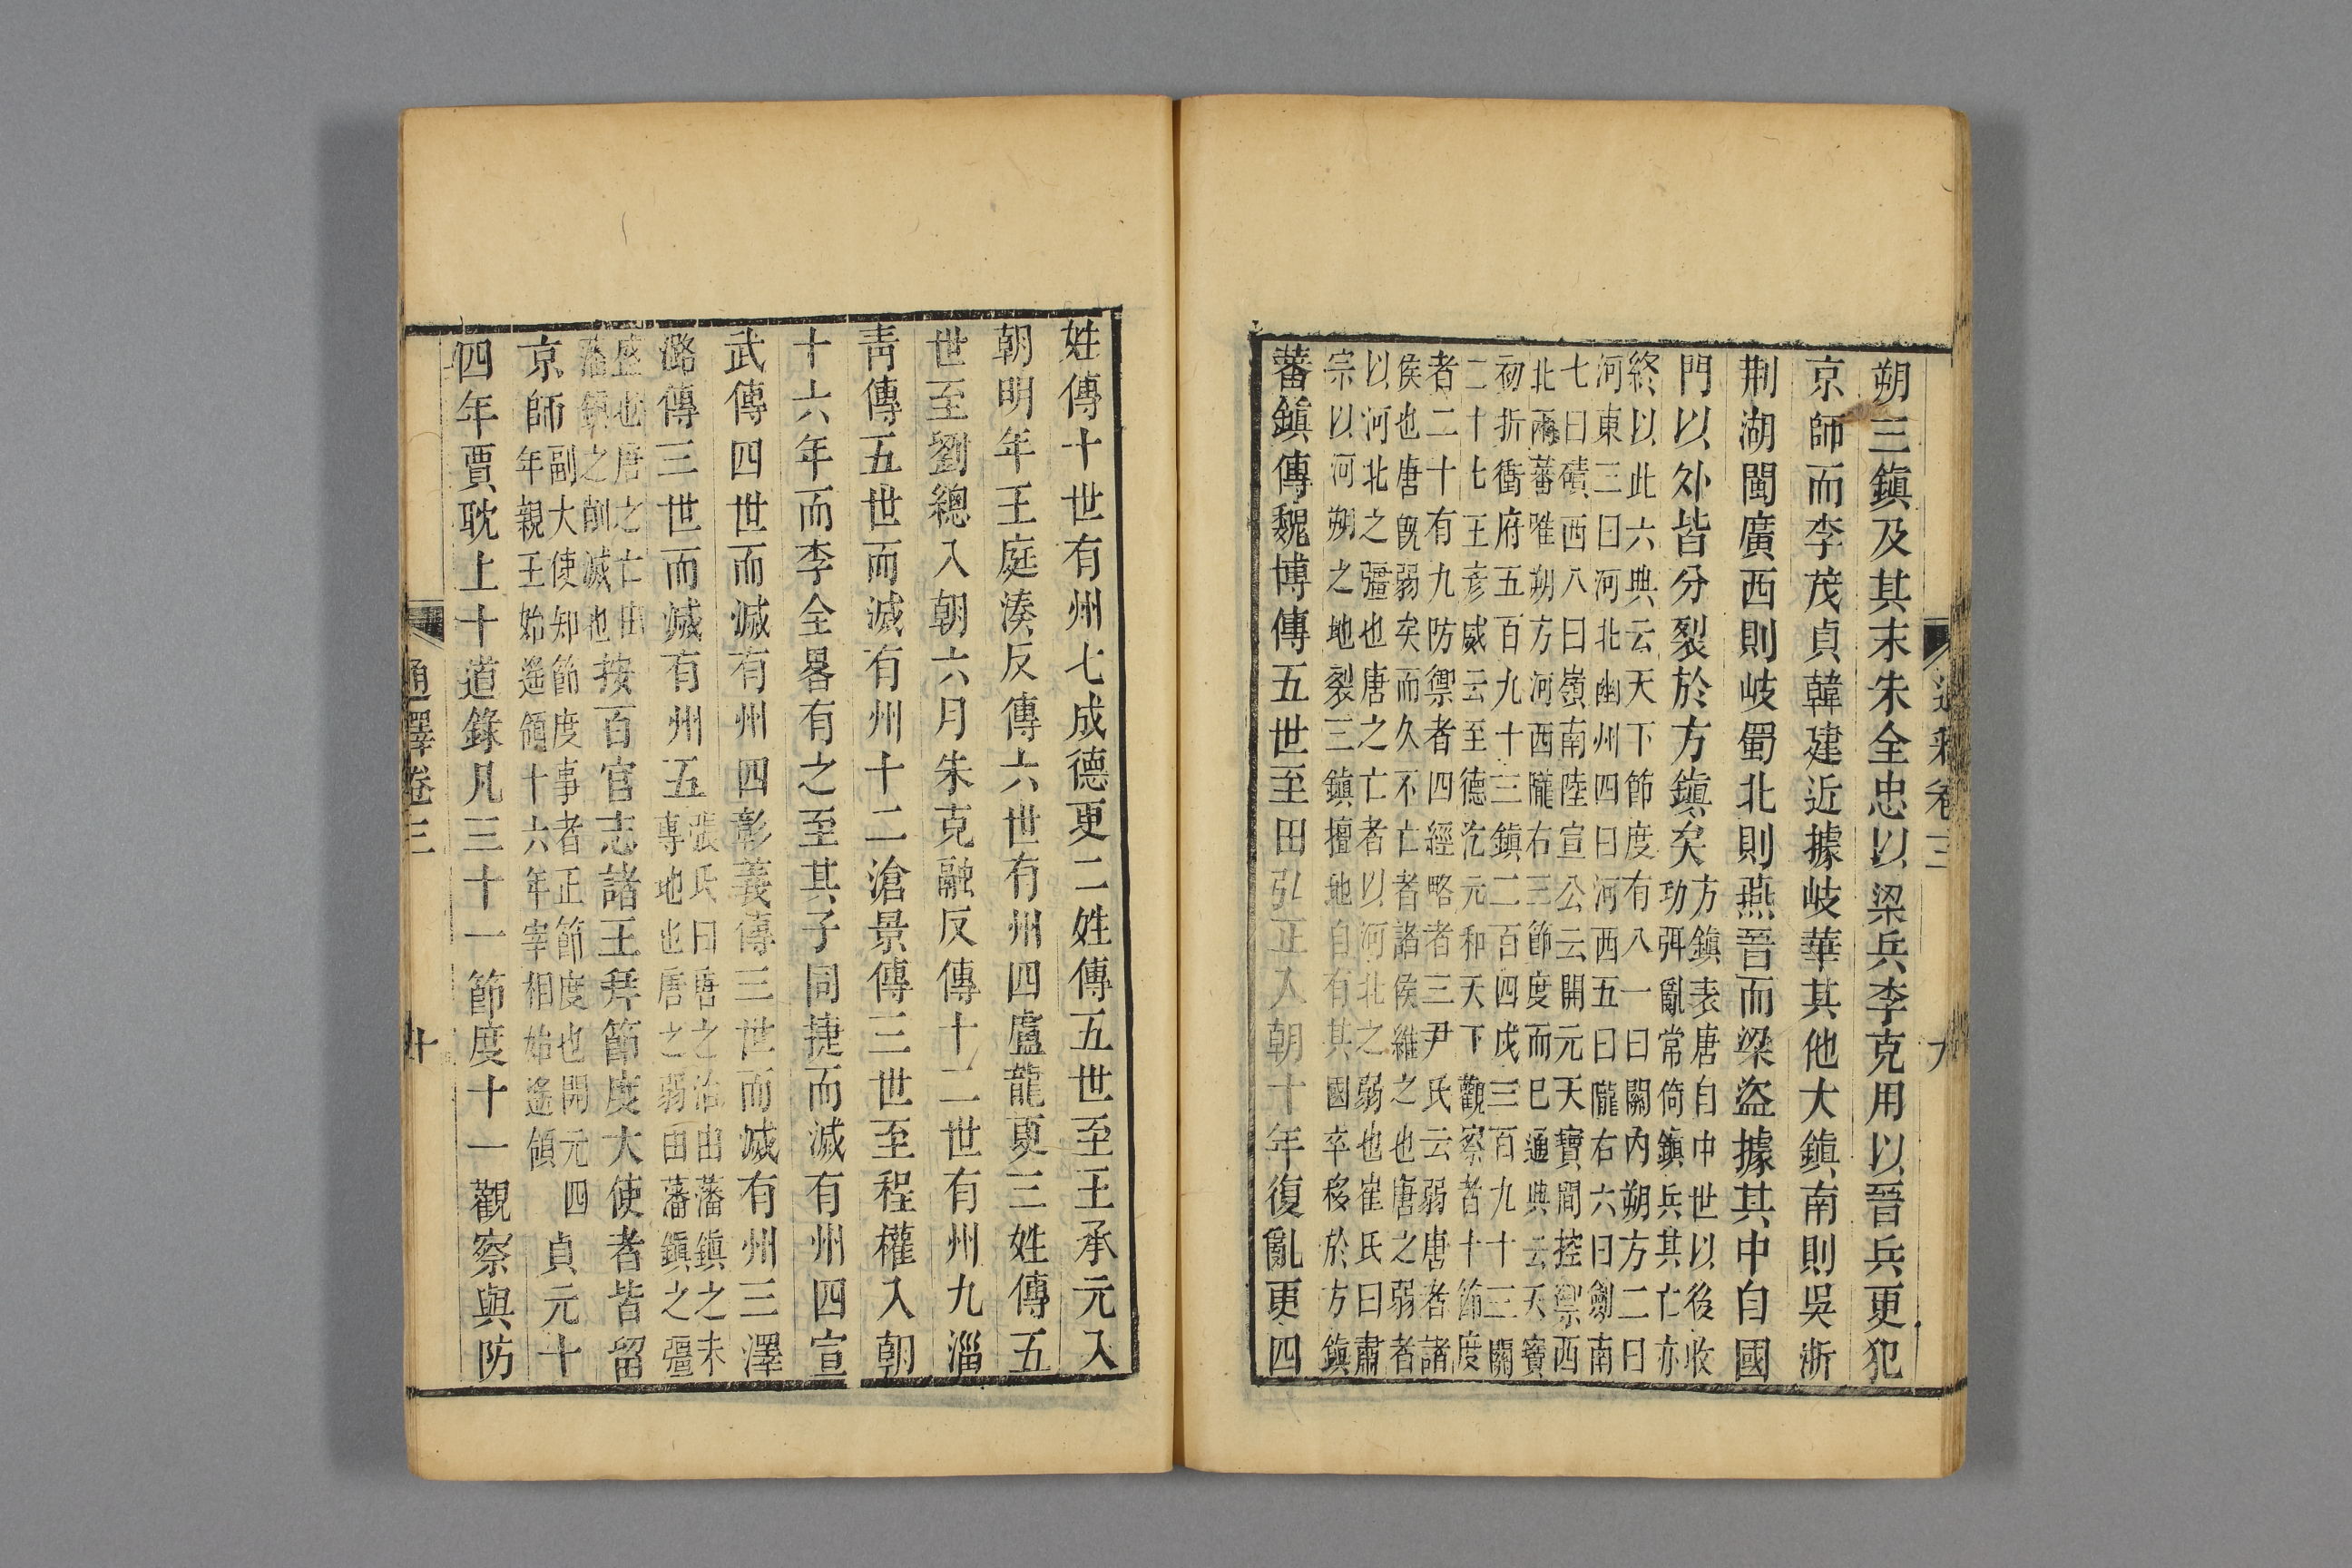 朔三鎮及其末朱全忠以梁兵李克用以晉兵更犯
京師而李茂貞韓建近據岐華其他大鎮南則吳浙
荆湖閩廣西則岐蜀北則燕晉而梁盜據其中自國
門以外皆分裂於方鎮矣
方鎮表唐自中世以後收
功弭亂常倚鎮兵其亡亦
終以此六典云天下節度有八一曰關內朔方二曰
河東三曰河北幽州四曰河西五曰隴右六曰劍南
七曰磧西八曰嶺南陸宣公云開元天寶間控禦西
北兩蕃唯朔方河西隴右三節度而已通典云天寶
初折衝府五百九十三鎮二百四戍三百九十三關
二十七王彥威云至德訖元和天下觀察者十節度
者二十有九防禦者四經略者三尹氏云弱唐者諸
侯也唐旣弱矣而久不亡者諸侯維之也唐之弱者
以河北之彊也唐之亡者以河北之弱也崔氏曰肅
宗以河朔之地裂三鎮擅地自有其國卒移於方鎮
蕃鎮傳魏博傳五世至田弘正入朝十年復亂更四
姓傳十世有州七成德更二姓傳五世至王承元入
朝明年王庭湊反傳六世有州四盧龍更三姓傳五
世至劉總入朝六月朱克融反傳十二世有州九淄
青傳五世而滅有州十二滄景傳三世至程權入朝
十六年而李全畧有之至其子同捷而滅有州四宣
武傳四世而滅有州四彰義傳三世而滅有州三澤
潞傳三世而滅有州五
張氏曰唐之治由藩鎮之未
專地也唐之弱由藩鎮之彊
盛也唐之亡由
藩鎮之削滅也
按百官志諸王拜節度大使者皆留
京師
副大使知節度事者正節度也開元四
年親王始遙領十六年宰相始遙領
貞元十
四年賈耽上十道錄凡三十一節度十一觀察與防
通釋卷三
十